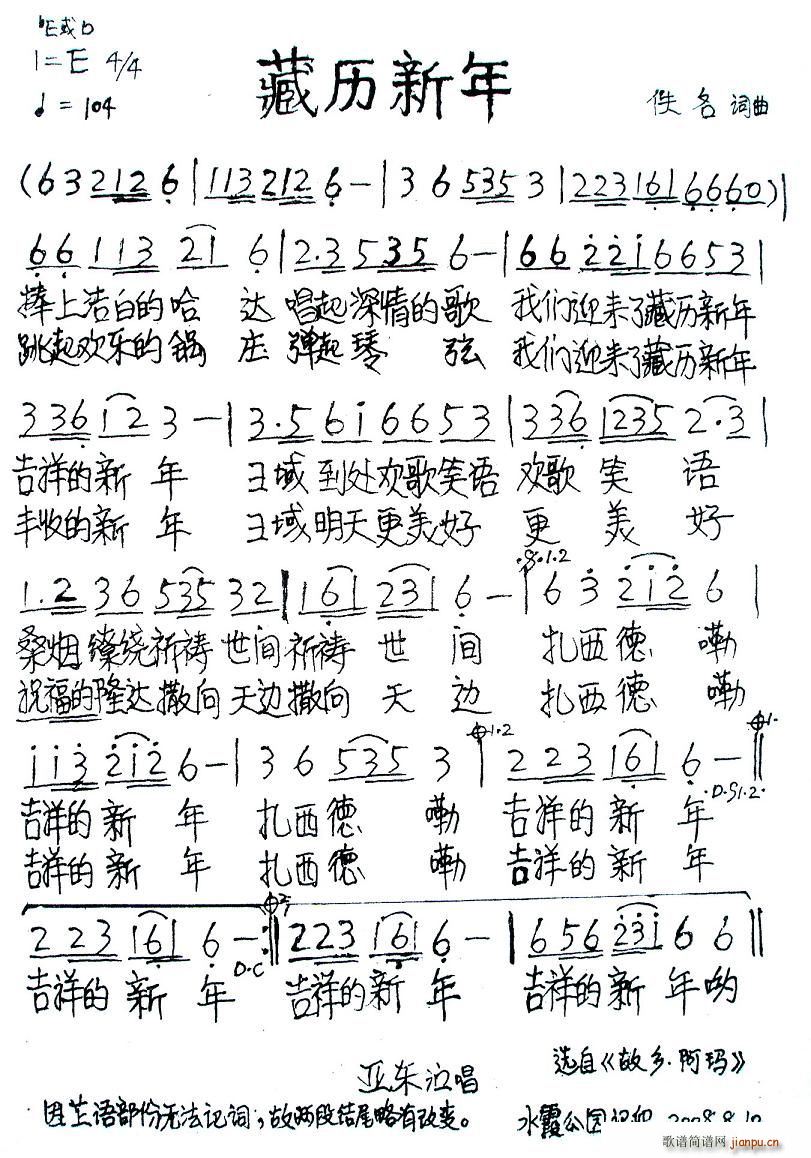 ♭E或D
1=E 4/4
♩=104
藏历新年
佚名 词曲
(6 3 2 1 2 6 | 1 1 3 2 1 2 6 - | 3 6 5 3 5 3 | 2 2 3 1 6 1 6 6 6 0) |
6 6 1 1 3 2 1 6 | 2. 3 5 3 5 6 - | 6 6 2 2 1 6 6 5 3 |
捧上洁白的哈 达 唱起深情的歌 我们迎来了藏历新年
跳起欢乐的锅 庄 弹起琴 弦 我们迎来了藏历新年
3 3 6 1 2 3 - | 3. 5 6 i 6 6 5 3 | 3 3 6 1 2 3 5 2. 3 |
吉祥的新 年 王域到处欢歌笑语 欢歌 笑 语
丰收的新 年 王域明天更美好 更 美 好
1. 2 3 6 5 3 5 3 2 | 1 6 1 2 3 1 6 - | 6 3 2 i 2 6 |
桑烟缭绕祈祷世间祈祷 世 间 扎西德 嘞
祝福的隆达撒向天边撒向 天 边 扎西德 嘞
i i 3 2 i 2 6 - | 3 6 5 3 5 3 | 2 2 3 1 6 1 6 - ||
D.S1.2.
吉祥的 新 年 扎西德 嘞 吉祥的 新 年
吉祥的 新 年 扎西德 嘞 吉祥的 新 年
2 2 3 1 6 1 6 - :|| 2 2 3 1 6 1 6 - | 6 5 6 2 3 i 6 6 ||
D.C
吉祥的 新 年 吉祥的新 年 吉祥的新 年哟
选自《故乡·阿玛》
亚东演唱
因藏语部份无法记词,故两段结尾略有改变。
水霞公园 2008.8.10
歌谱简谱网
jianpu.cn